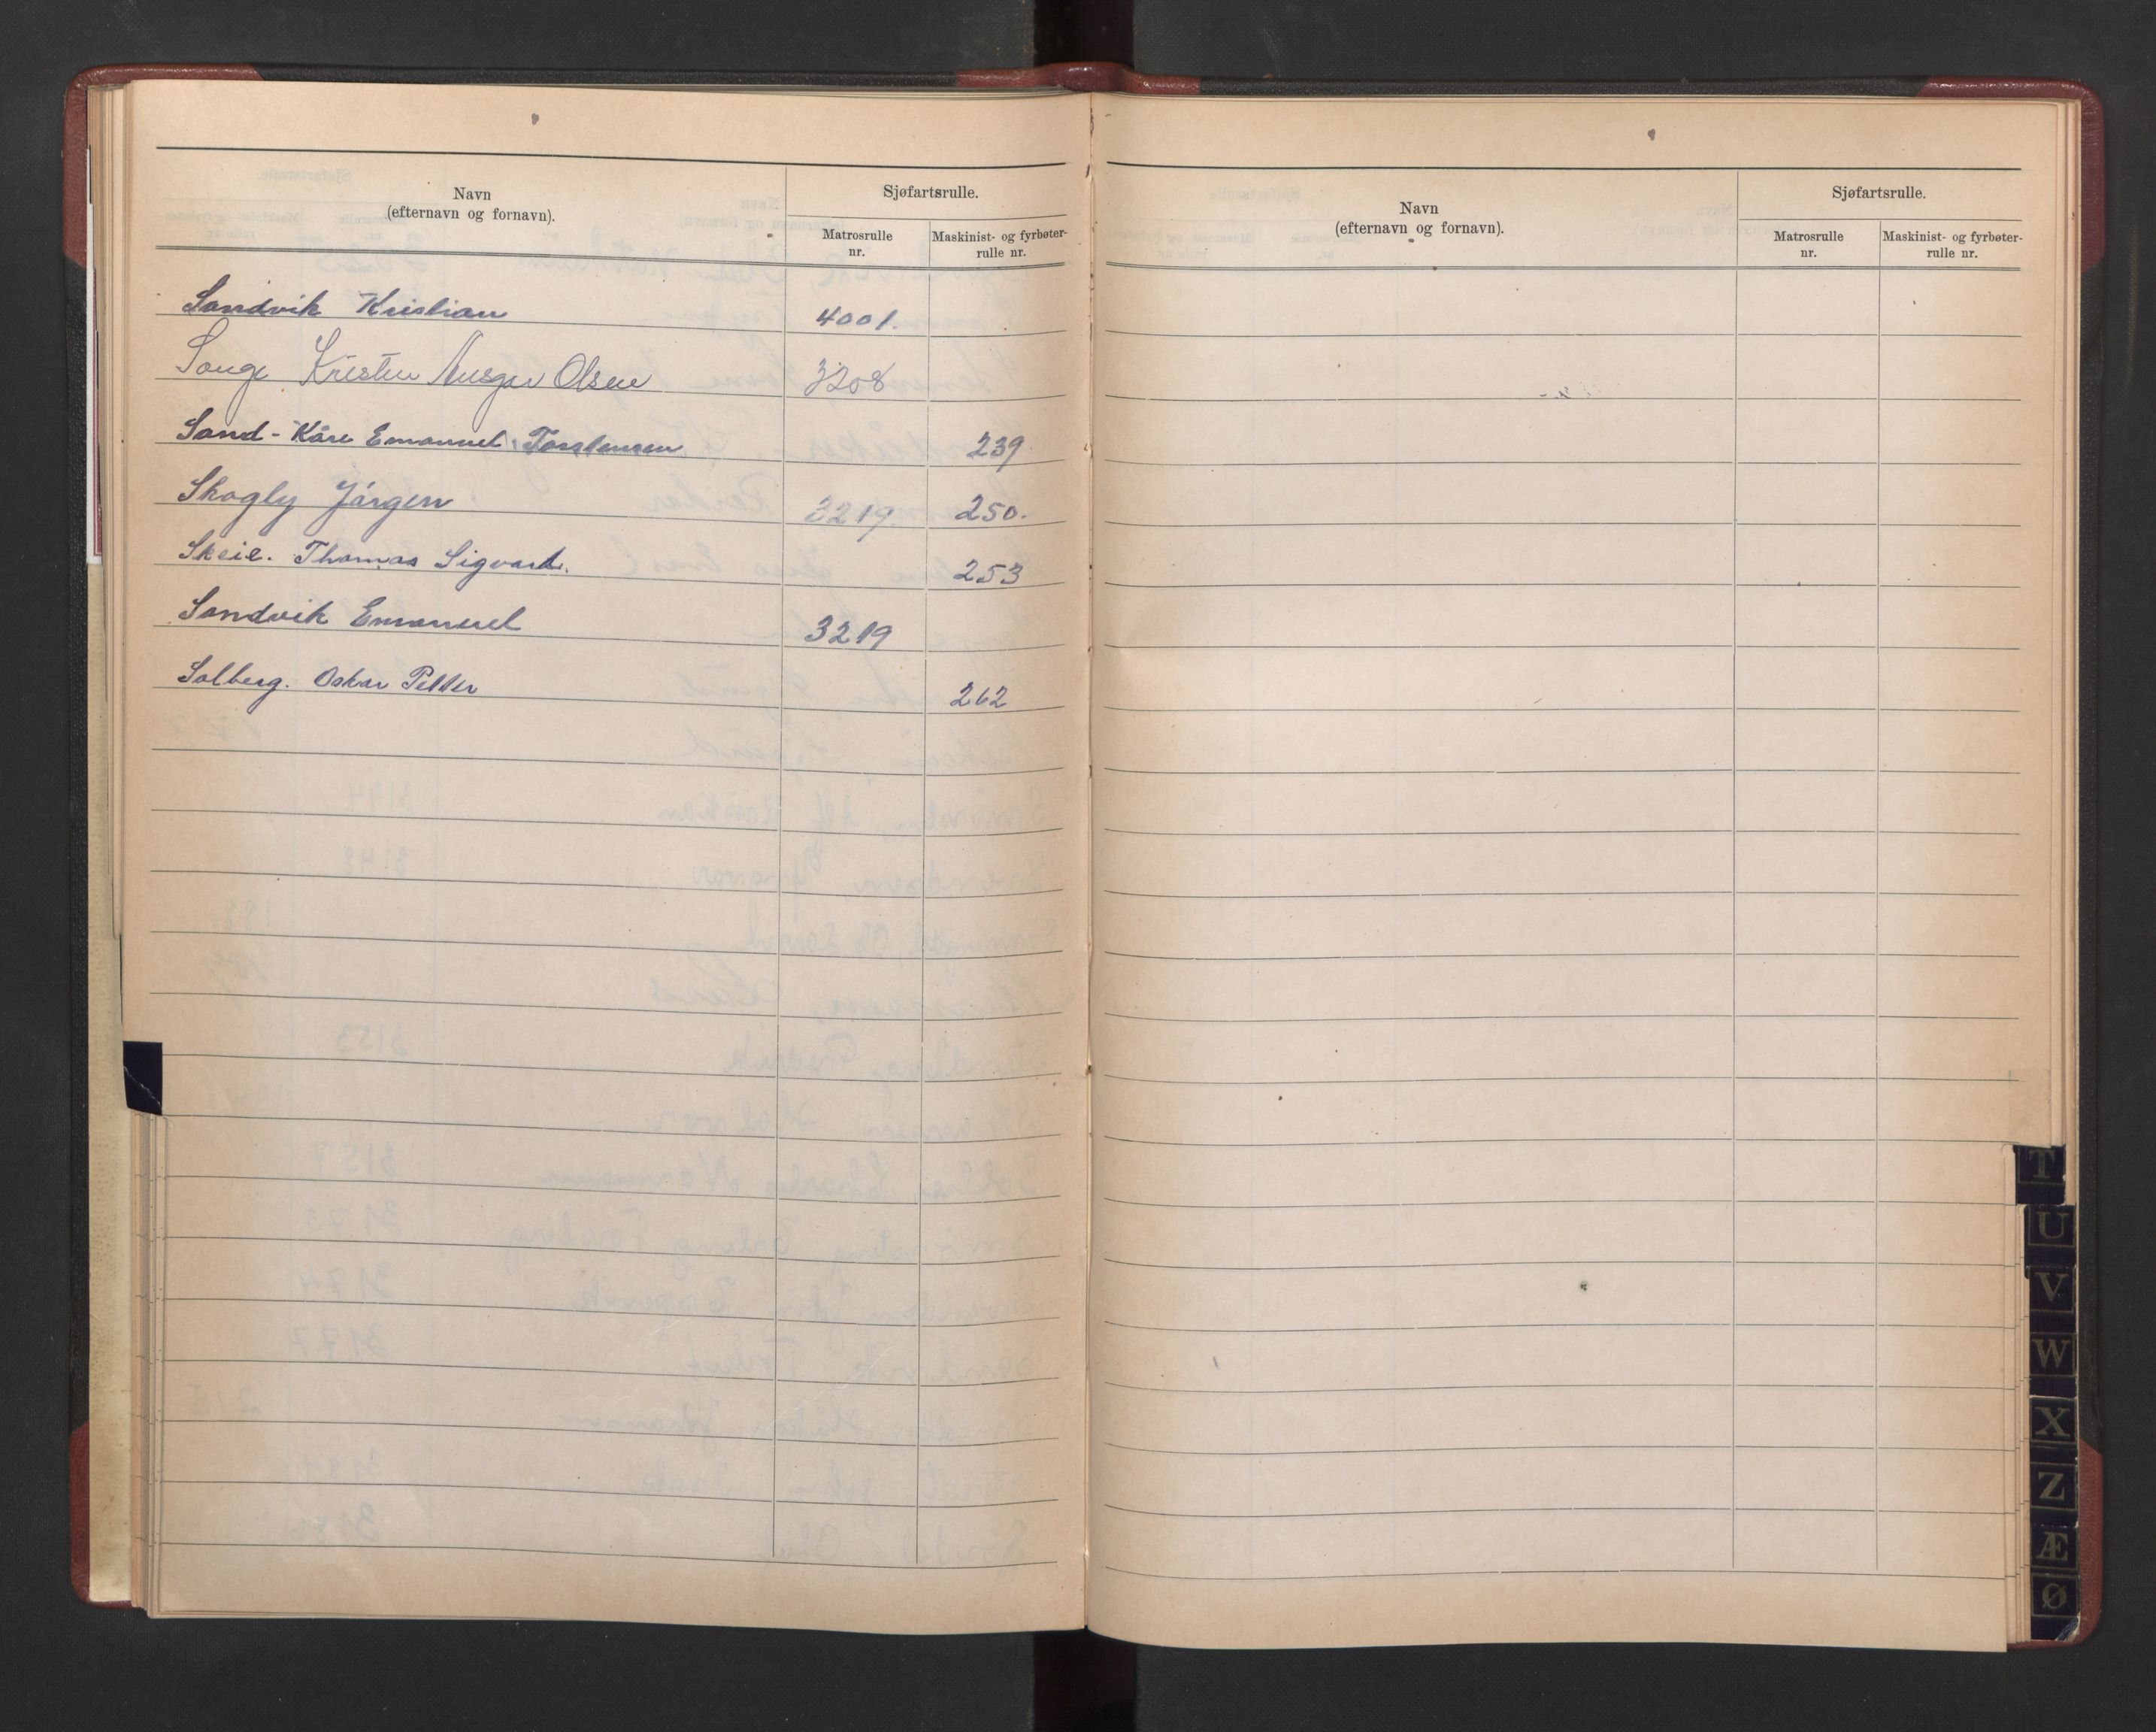 Navn
(efternavn og fornavn).
Sjøfartsrulle.
Matrosrulle
nr.
Maskinist- og fyrbøter-
rulle nr.
Sandvik Kristian 4001.
Sauge Kristen Ansgar Olsen 3208
Sand - Kåre Emanuel Torstensen 239
Skogly Jørgen 3219. 250.
Skeie. Thomas Sigvard. 253
Sandvik Emanuel 3219
Solberg. Oskar Petter 262
Navn
(efternavn og fornavn).
Sjøfartsrulle.
Matrosrulle
nr.
Maskinist- og fyrbøter-
rulle nr.
T
U
V
W
X
Z
Æ
Ø